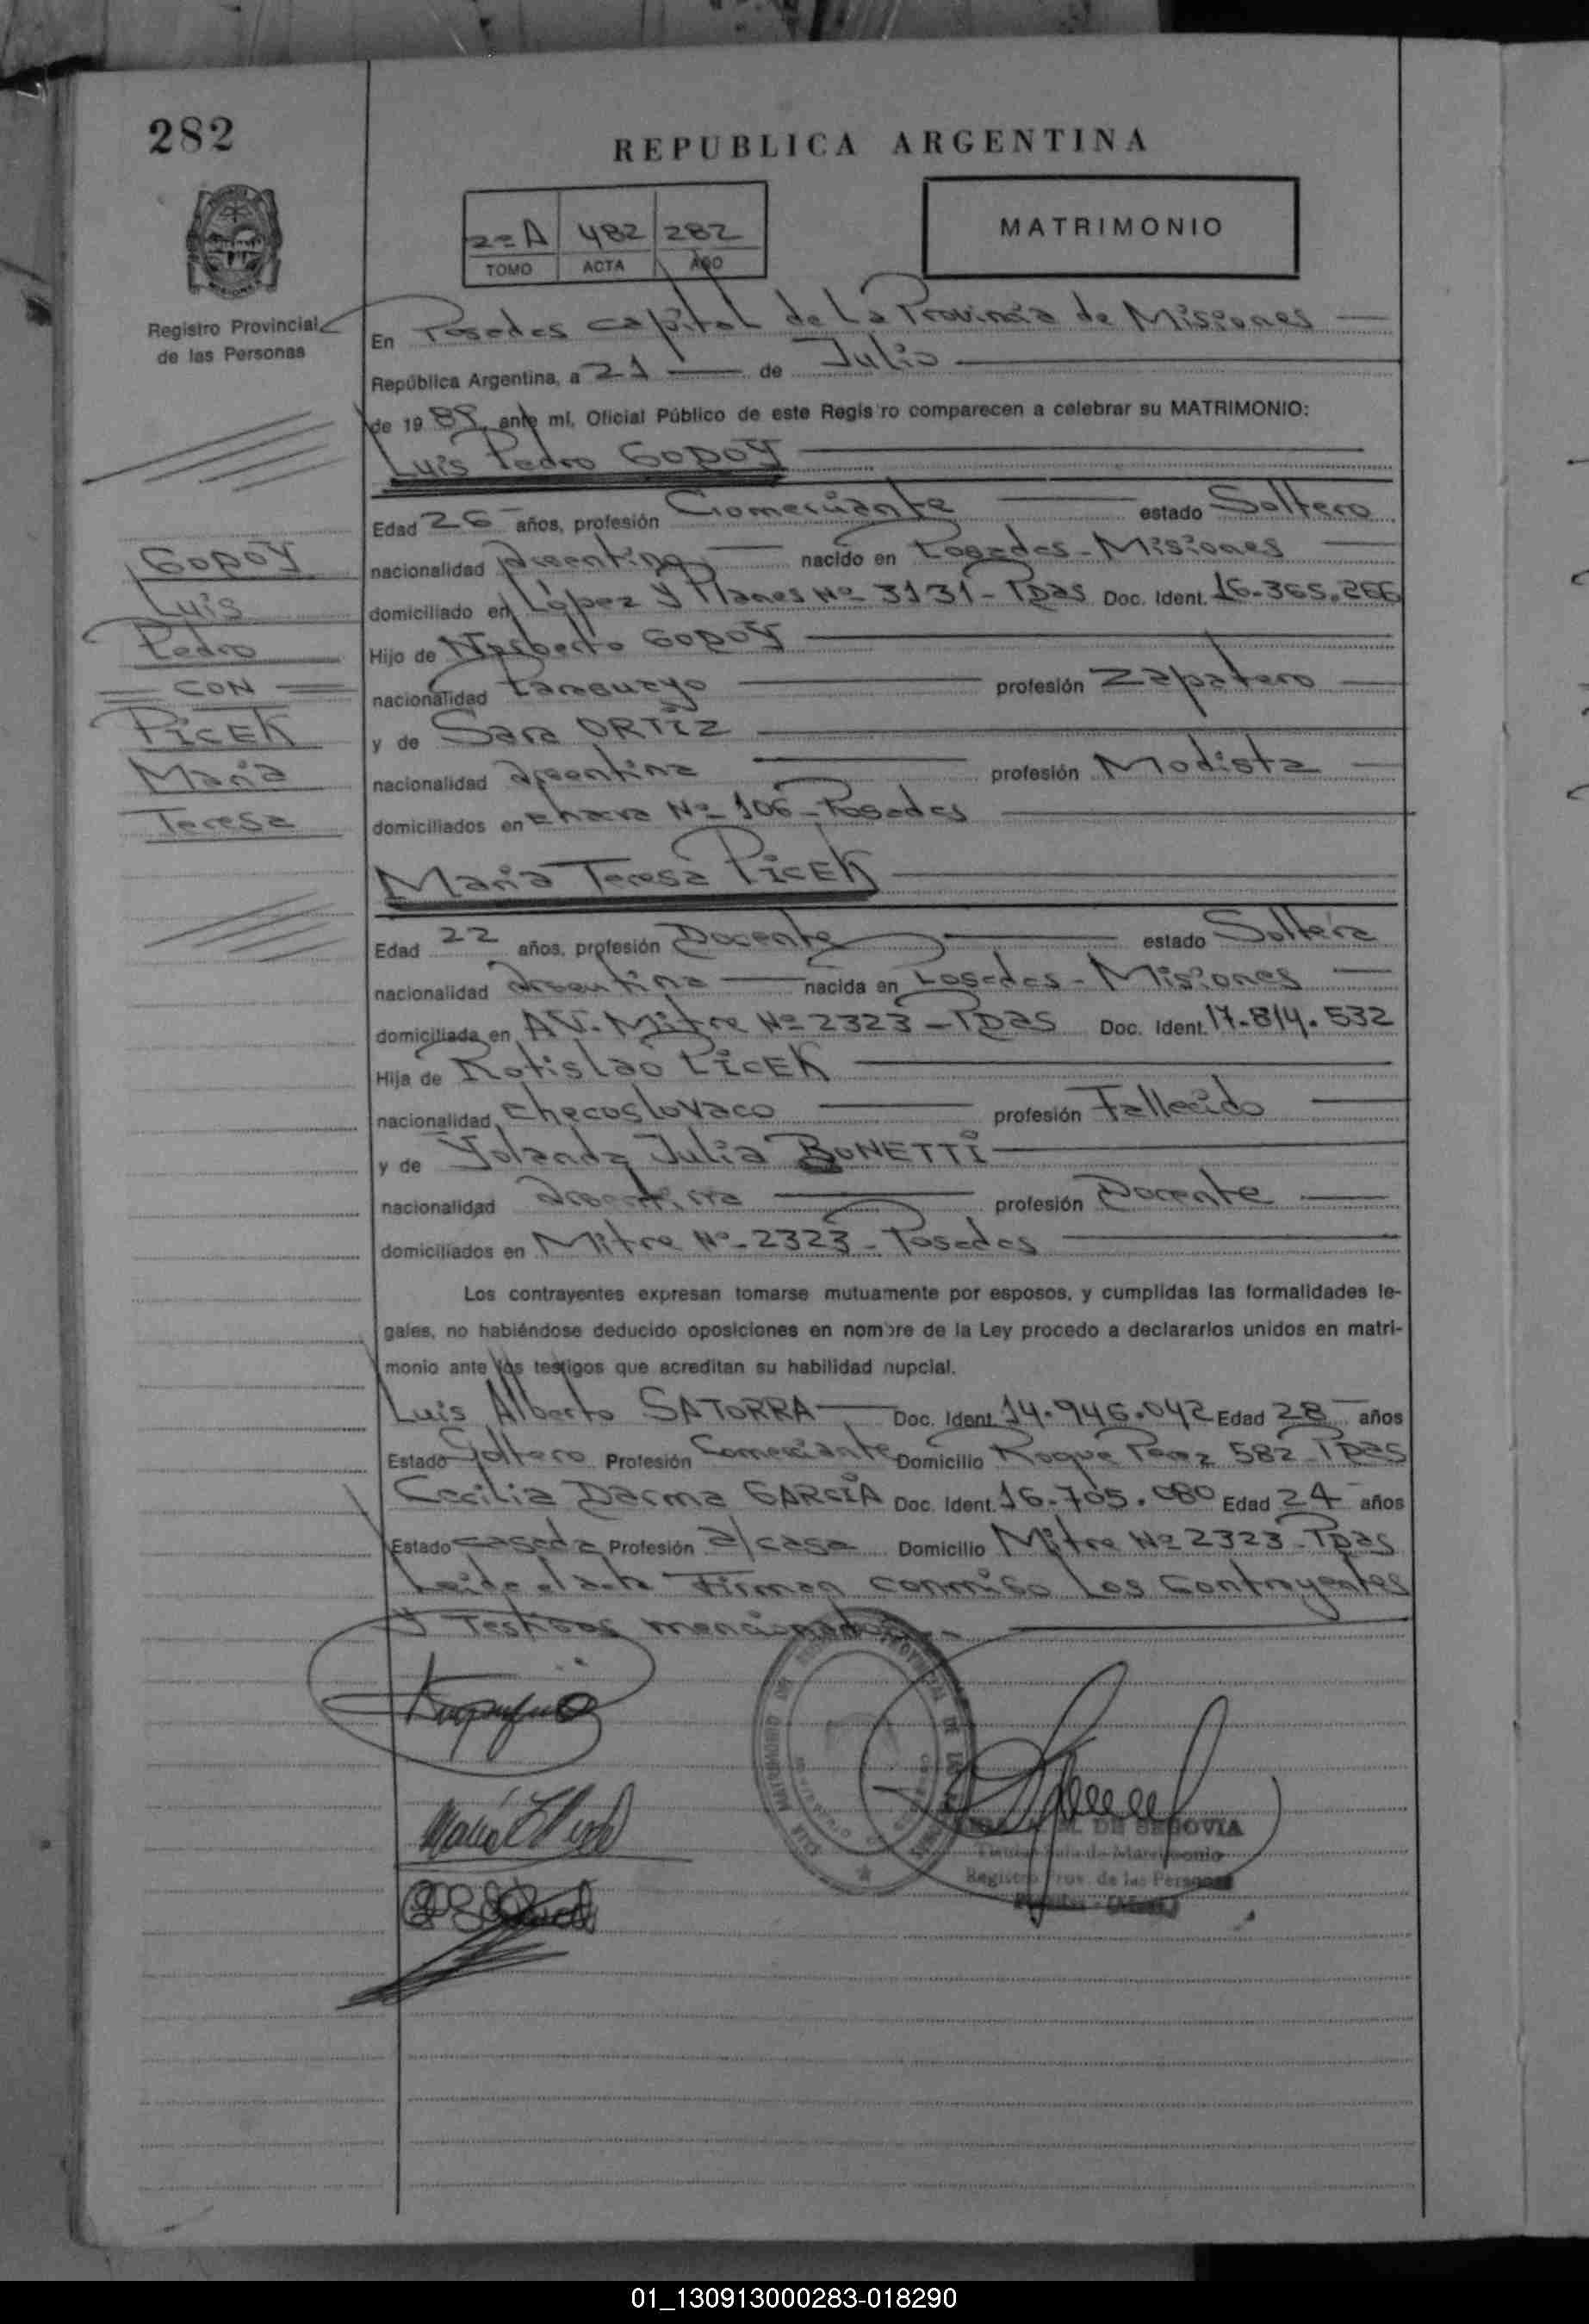 282
REPUBLICA ARGENTINA
2=A 482 282
TOMO ACTA AÑO
MATRIMONIO
Registro Provincial
de las Personas
En Posadas capital de La Provincia de Misiones
República Argentina, a 21 de Julio
de 1989, ante mí, Oficial Público de este Registro comparecen a celebrar su MATRIMONIO:
Luis Pedro GODOY
Edad 26 años, profesión Comerciante estado Soltero
nacionalidad Argentina nacido en Posadas - Misiones
domiciliado en López y Planes Nº 3131 - Pdas Doc. Ident. 16.365.266
Hijo de Norberto GODOY
nacionalidad Paraguayo profesión Zapatero
y de Sara ORTIZ
nacionalidad Argentina profesión Modista
domiciliados en Chacra Nº 106 - Posadas
GODOY
Luis
Pedro
CON
PICEK
Maria
Teresa
Maria Teresa PICEK
Edad 22 años, profesión Docente estado Soltera
nacionalidad Argentina nacida en Posadas - Misiones
domiciliada en AV. Mitre Nº 2323 - Pdas Doc. Ident. 17.814.532
Hija de Rotislao PICEK
nacionalidad Checoslovaco profesión Fallecido
y de Yolanda Julia BONETTI
nacionalidad Argentina profesión Docente
domiciliados en Mitre Nº 2323 - Posadas
Los contrayentes expresan tomarse mutuamente por esposos, y cumplidas las formalidades le-
gales, no habiéndose deducido oposiciones en nombre de la Ley procedo a declararlos unidos en matri-
monio ante los testigos que acreditan su habilidad nupcial.
Luis Alberto SATORRA Doc. Ident. 14.946.042 Edad 28 años
Estado Soltero Profesión Comerciante Domicilio Roque Perez 582 - Pdas
Cecilia Darma GARCIA Doc. Ident. 16.705.080 Edad 24 años
Estado casada Profesión a/casa Domicilio Mitre Nº 2323 - Pdas
Leida el acta Firman conmigo Los Contrayentes
y Testigos mencionados
DE SEGOVIA
Sala de Matrimonio
Registro Prov. de las Personas
01_130913000283-018290